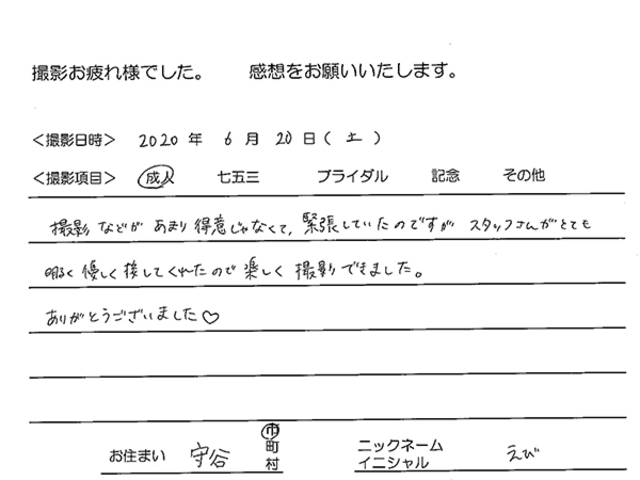 撮影お疲れ様でした。 感想をお願いいたします。
<撮影日時> 2020 年 6 月 20 日 ( 土 )
<撮影項目> 成人 七五三 ブライダル 記念 その他
撮影などが あまり 得意じゃなくて、緊張していたのですが スタッフさんがとても
明るく 優しく 接してくれたので 楽しく 撮影できました。
ありがとうございました♡
お住まい 守谷 市町村 ニックネーム イニシャル えび